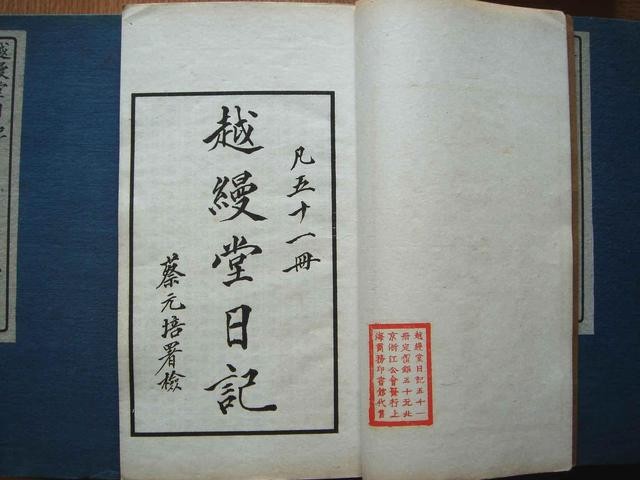 凡五十一冊
越縵堂日記
蔡元培署檢
越縵堂日記五十一
冊定價銀五十元北
京浙江公會發行上
海商務印書館代售
越縵堂日記